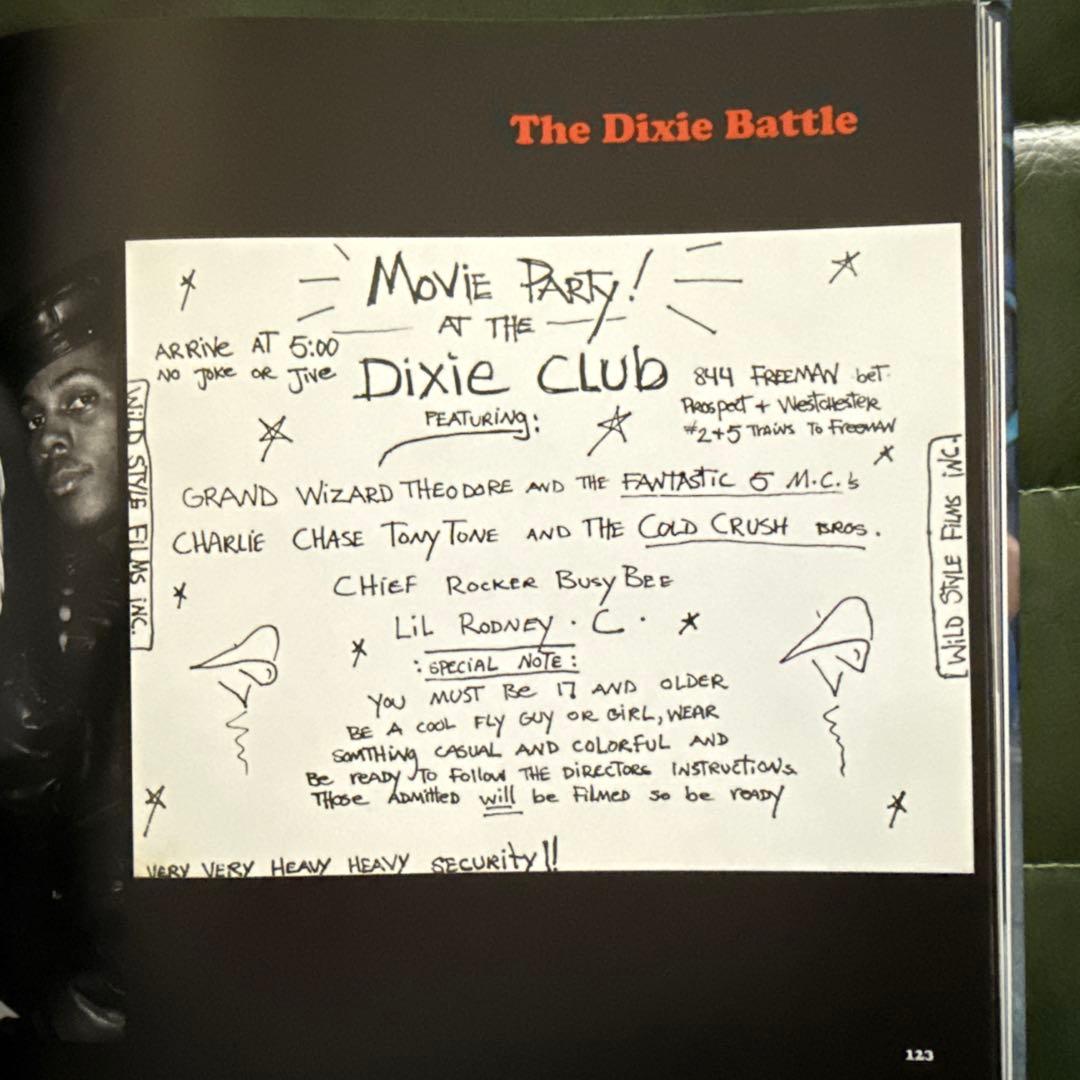 The Dixie Battle
MOViE PARTY!
AT THE
ARRiVE AT 5:00
NO JOKE OR JiVE
DixiE CLUb
844 FREEMAN bET.
PROSPECT + WESTCHESTER
#2+5 TRAiNS TO FREEMAN
FEATURiNG:
WiLD STYLE FiLMS iNC.
WiLD STYLE FiLMS iNC.
GRAND WiZARD THEODORE AND THE FANTASTiC 5 M.C.'s
CHARLiE CHASE TONY TONE AND THE COLD CRUSH BROS.
CHiEF ROCKER BUSY BEE
LiL RODNEY · C ·
: SPECiAL NOTE :
YOU MUST BE 17 AND OLDER
BE A COOL FLY GUY OR GiRL, WEAR
SOMTHiNG CASUAL AND COLORFUL AND
BE READY TO FOLLOW THE DiRECTORS iNSTRUCTiONS
THOSE ADMiTTED will be FiLMED SO be READY
VERY VERY HEAVY HEAVY SECURiTY!!
123